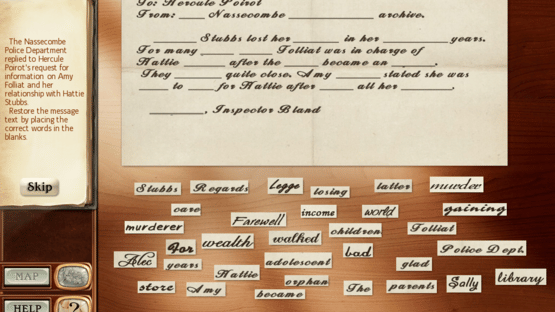 The Nassecombe
Police Department
replied to Hercule
Poirot's request for
information on Amy
Folliat and her
relationship with Hattie
Stubbs.
Restore the message
text by placing the
correct words in the
blanks.
Skip
MAP
HELP
?
To: Hercule Poirot
From: ____ Nassecombe ____________ archive.
Stubbs lost her ______ in her ______ years.
For many _____ ____ Folliat was in charge of
Hattie ______ after the _____ became an _____.
They _______ quite close. Amy _____ stated she was
to ____ for Hattie after ____ all her ________.
________, Inspector Bland
Stubbs Regards Legge losing latter murder
care Farewell income world gaining
murderer children Folliat
For wealth walked bad Police Dept.
Alec years adolescent glad
Hattie orphan library
store Amy became The parents Sally